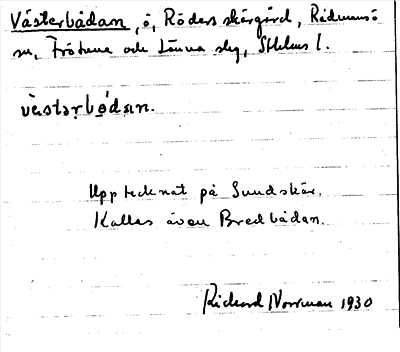 Västerbådan, ö, Röders skärgård, Rådmansö
sn, Frötuna och Länna skg, Sthlms l.
västərbådan.
Upptecknat på Sundskär.
Kallas även Bredbådan.
Rickard Norrman 1930